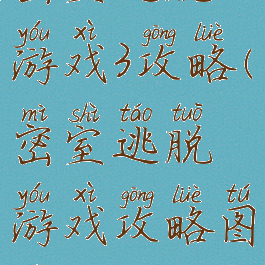 yóu xì gōng lüè
游戏3攻略(
mì shì táo tuō
密室逃脱
yóu xì gōng lüè tú
游戏攻略图